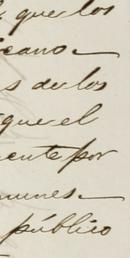 que los
icano.—
s de los
que el
ente por
munes.—
público